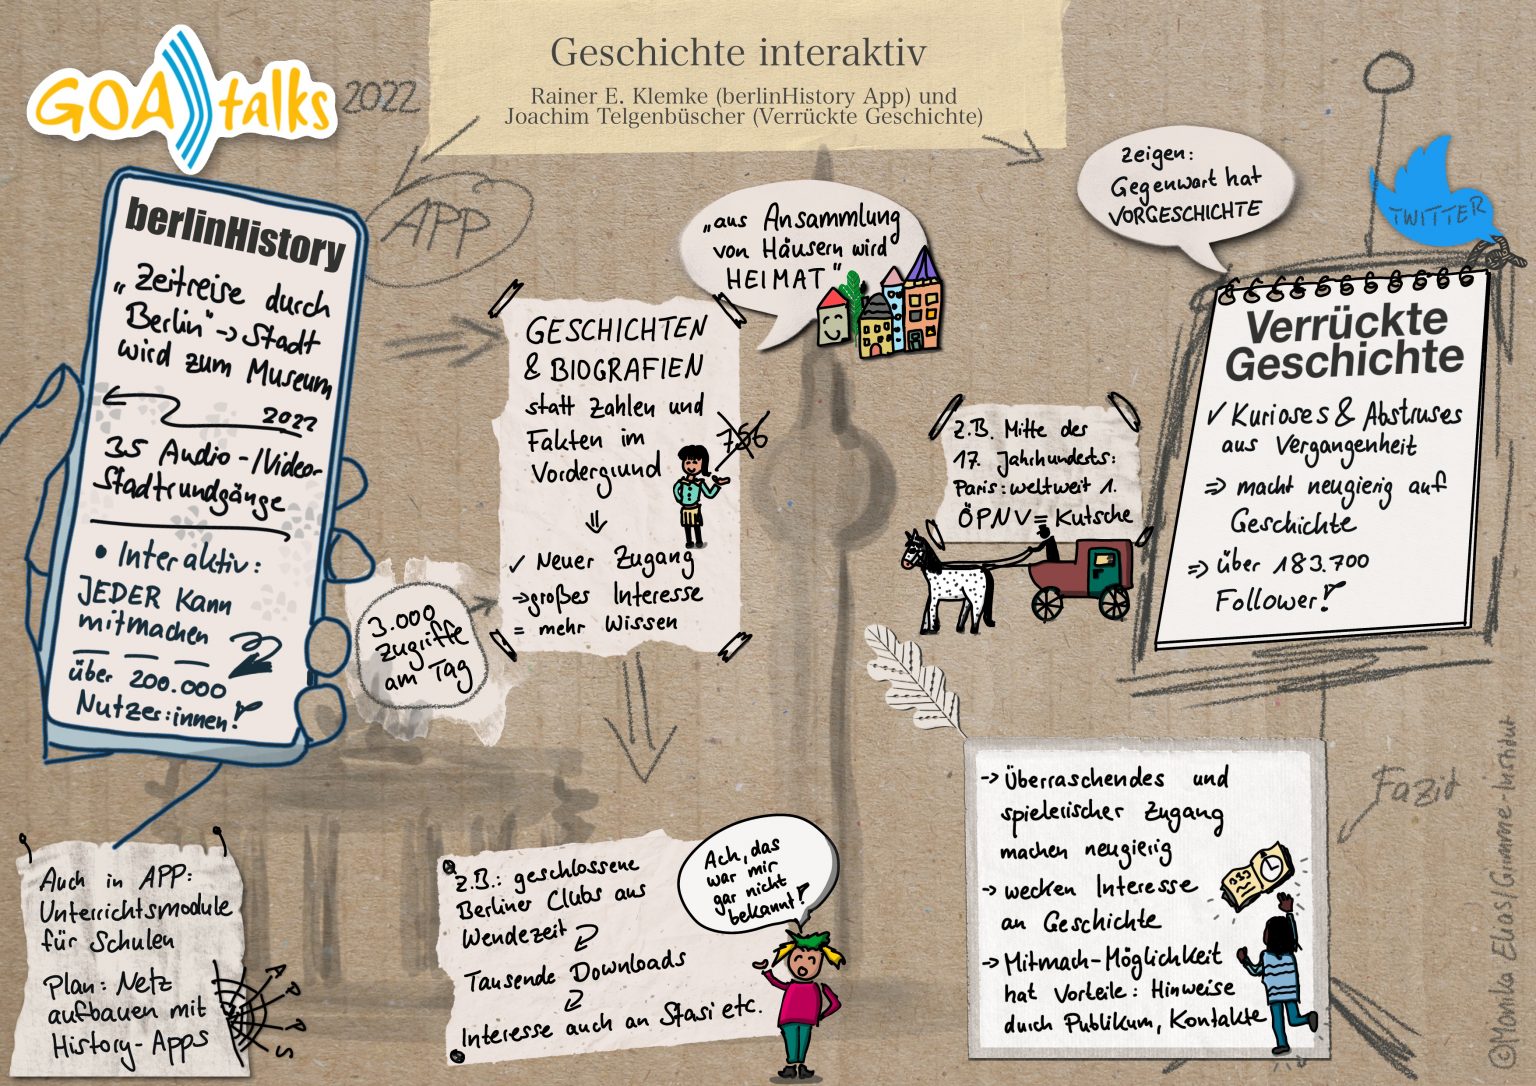 GOA talks 2022
Geschichte interaktiv
Rainer E. Klemke (berlinHistory App) und
Joachim Telgenbüscher (Verrückte Geschichte)
APP
berlinHistory
„Zeitreise durch
Berlin" -> Stadt
wird zum Museum
2022
35 Audio-/Video-
Stadtrundgänge
• Interaktiv:
JEDER kann
mitmachen
über 200.000
Nutzer:innen!
3.000
Zugriffe
am Tag
Auch in APP:
Unterrichtsmodule
für Schulen
Plan: Netz
aufbauen mit
History-Apps
APPS
GESCHICHTEN
& BIOGRAFIEN
statt Zahlen und
Fakten im
Vordergrund
756
⇓
✓ Neuer Zugang
-> großes Interesse
= mehr Wissen
„aus Ansammlung
von Häusern wird
HEIMAT"
z.B.: geschlossene
Berliner Clubs aus
Wendezeit
Tausende Downloads
Interesse auch an Stasi etc.
Ach, das
war mir
gar nicht
bekannt!
Zeigen:
Gegenwart hat
VORGESCHICHTE
TWITTER
Verrückte
Geschichte
✓ Kurioses & Abstruses
aus Vergangenheit
=> macht neugierig auf
Geschichte
=> über 183.700
Follower!
z.B. Mitte des
17. Jahrhunderts:
Paris: weltweit 1.
ÖPNV = Kutsche
Fazit
-> Überraschendes und
spielerischer Zugang
machen neugierig
-> wecken Interesse
an Geschichte
-> Mitmach-Möglichkeit
hat Vorteile: Hinweise
durch Publikum, Kontakte
©Monika Elias/Grimme-Institut